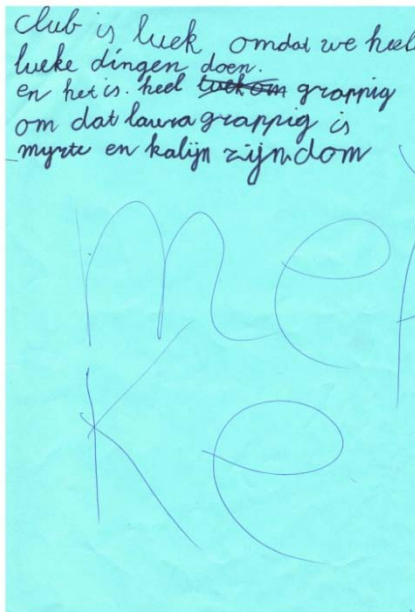 club is luek omdat we heel
lueke dingen doen.
en het is. heel grappig
om dat laura grappig is
myrte en kalijn zijn dom
me
Ke